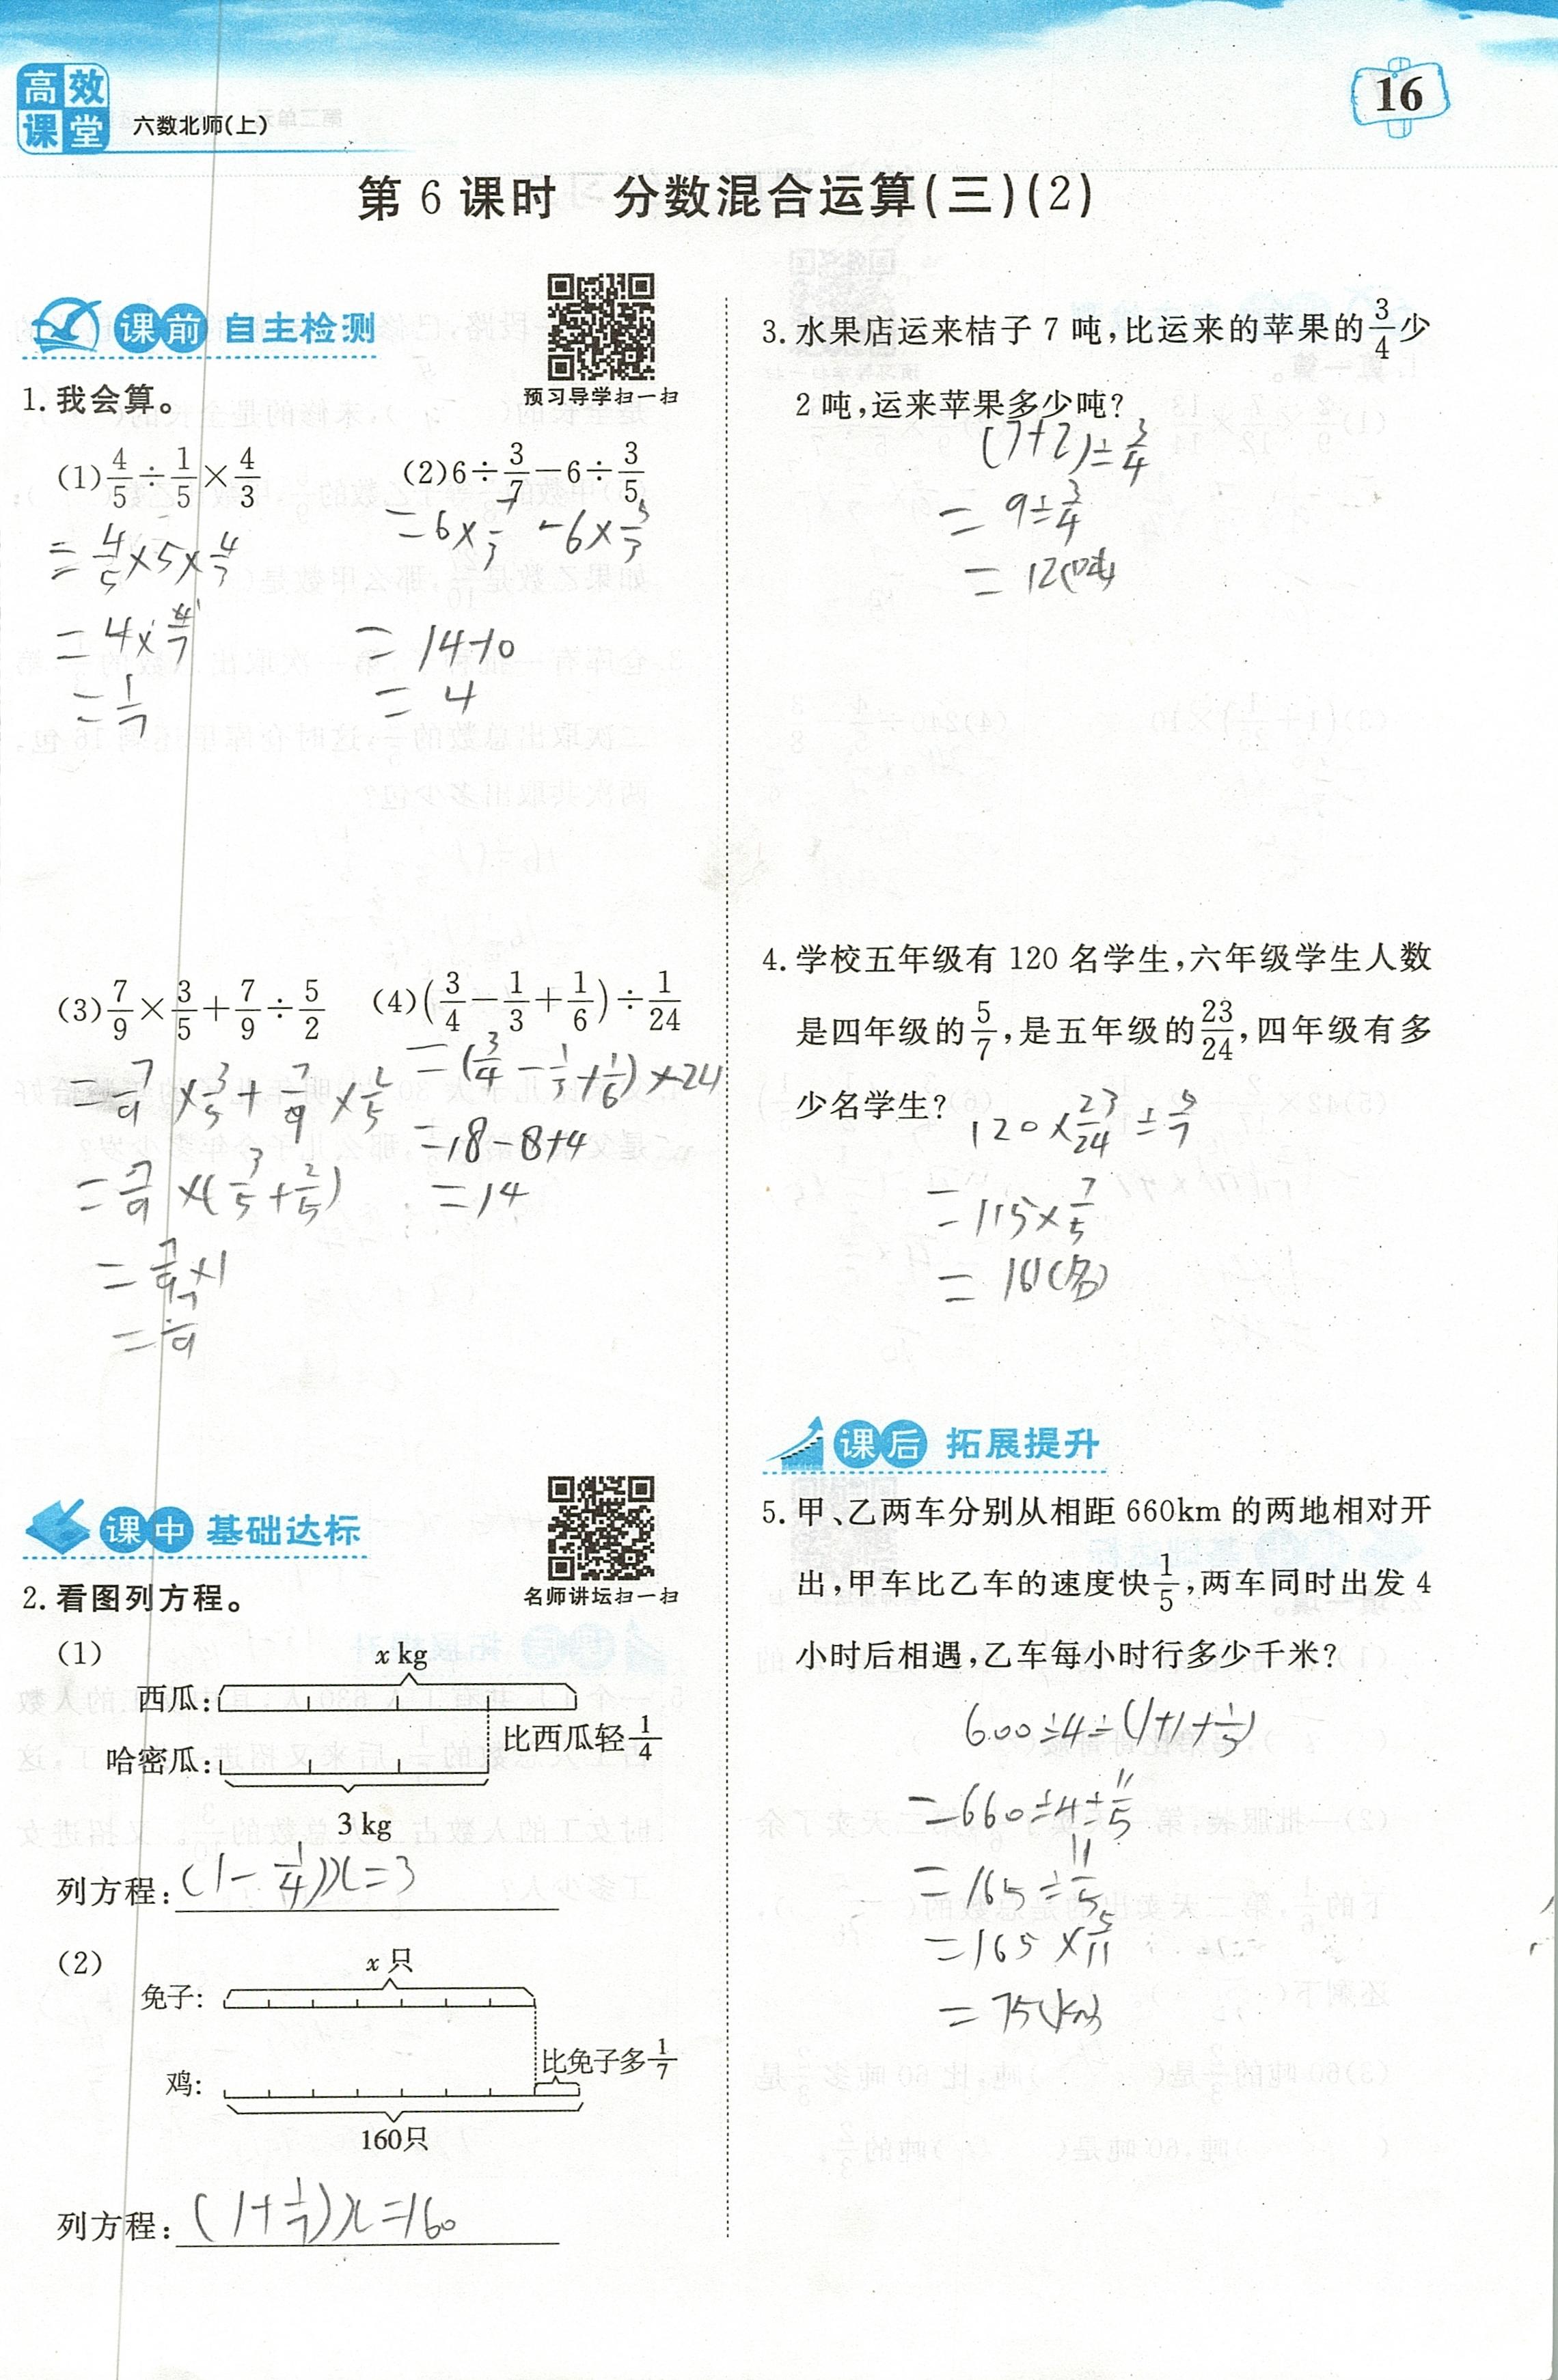 高效课堂
六数北师(上)
16
第6课时 分数混合运算(三)(2)
课前 自主检测
预习导学扫一扫
1. 我会算。
(1) 4/5÷1/5×4/3
=4/5×5×4/3
(2) 6÷3/7-6÷3/5
=6×7/3-6×5/3
=14-10
=4
(3) 7/9×3/5+7/9÷5/2
=7/9×3/5+7/9×2/5
=7/9×(3/5+2/5)
=7/9×1
=7/9
(4) (3/4-1/3+1/6)÷1/24
=(3/4-1/3+1/6)×24
=18-8+4
=14
课中 基础达标
名师讲坛扫一扫
2. 看图列方程。
(1)
x kg
西瓜:
比西瓜轻1/4
哈密瓜:
3 kg
列方程:(1-1/4)x=3
(2)
x只
兔子:
比兔子多1/7
鸡:
160只
列方程:(1+1/7)x=160
3. 水果店运来桔子7吨,比运来的苹果的3/4少
2吨,运来苹果多少吨?
(7+2)÷3/4
=9÷3/4
=12(吨)
4. 学校五年级有120名学生,六年级学生人数
是四年级的5/7,是五年级的23/24,四年级有多
少名学生?
120×23/24÷5/7
=115×7/5
=161(名)
课后 拓展提升
5. 甲、乙两车分别从相距660km的两地相对开
出,甲车比乙车的速度快1/5,两车同时出发4
小时后相遇,乙车每小时行多少千米?
600÷4÷(1+1+1/5)
=660÷4÷11/5
=165÷11/5
=165×5/11
=75(km)